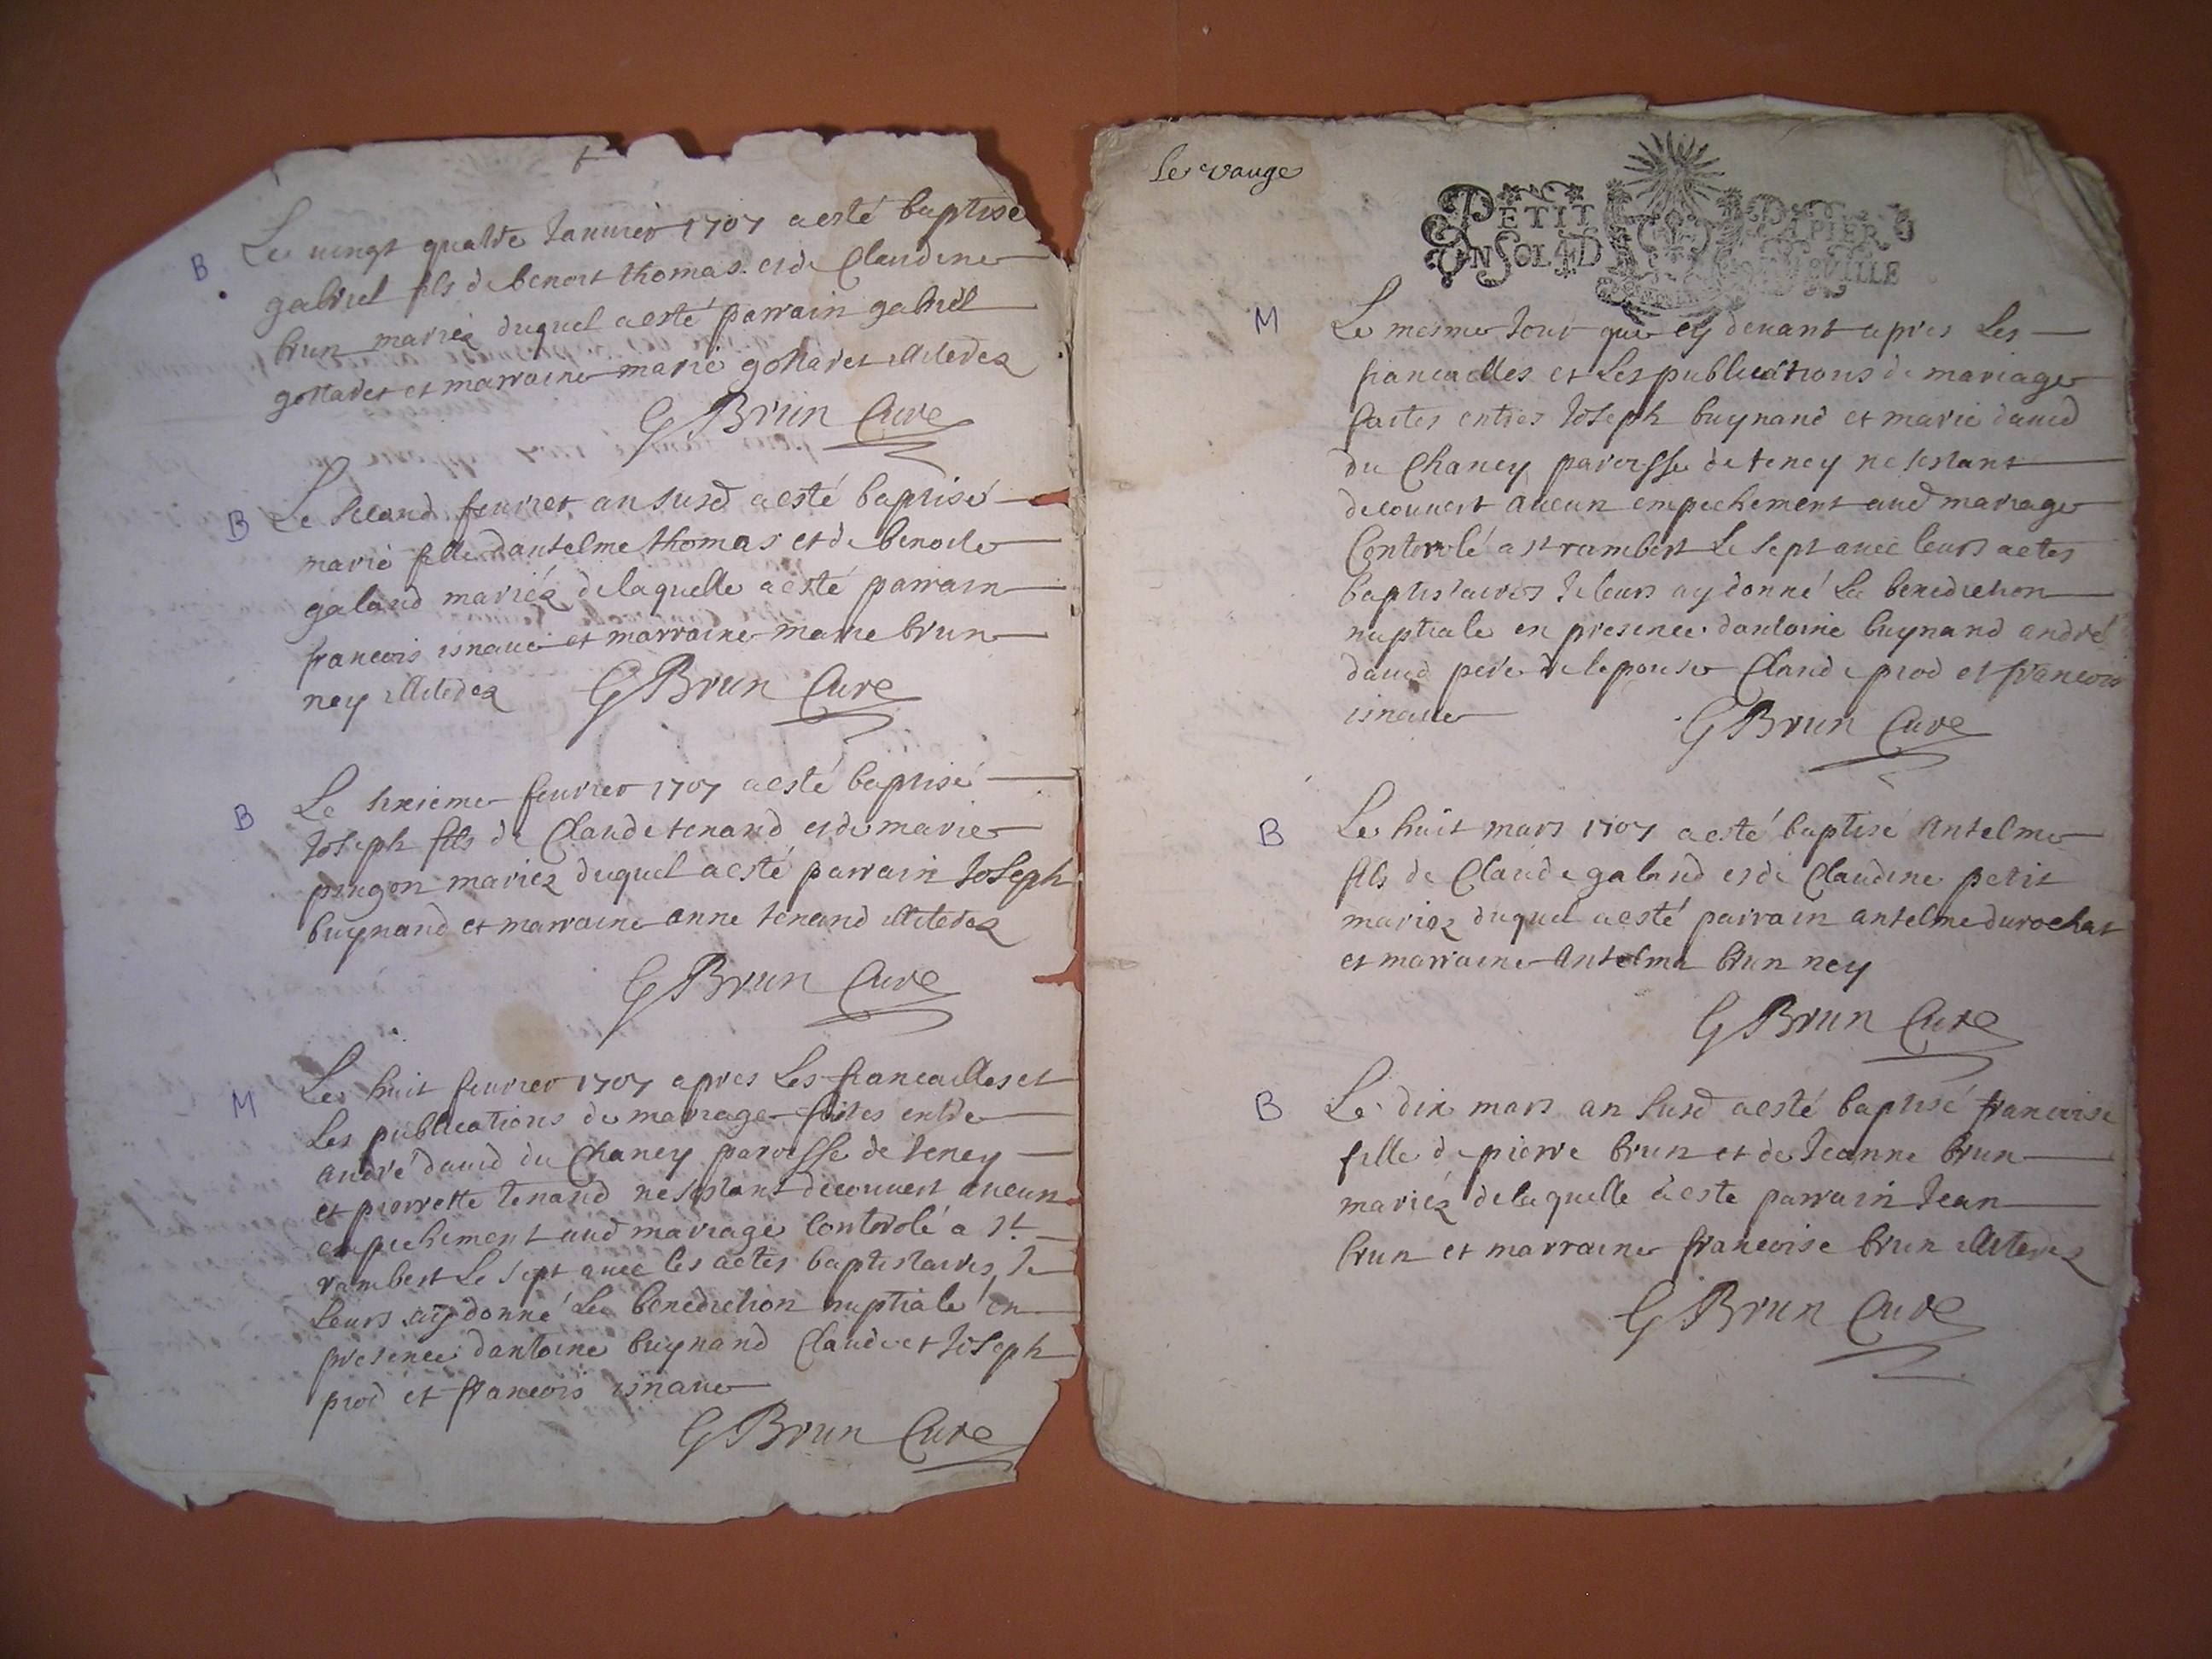 B
Le vingt quatre Janvier 1707 a esté baptisé
gabriel fils de benoit thomas et de Claudine
brun mariéz duquel a esté parrain gabriel
gottaret et marraine marie gottaret illiterez
G Brun Curé
B
Le second feuvrier an susd a esté baptisé
marie fille dantelme thomas et de benoite
galand mariéz de laquelle a esté parrain
francois isnaue et marraine marie brun
ney illiterez G Brun Curé
B
Le sixieme feuvrier 1707 a esté baptisé
Joseph fils de Claude tenand et de marie
pingon mariez duquel a esté parrain Joseph
buynand et marraine anne tenand illiterez
G Brun Curé
M
Le huit feuvrier 1707 apres Les fiancailles et
Les publications de mariage faites entre
andré david du Chaney paroisse de teney
et pierrette tenand ne sestant decouvert aucun
empechement aud mariage Controlé a St
rambert Le sept avec les actes baptistaires, Je
Leurs ay donné La benediction nuptiale en
presence dantoine buynand Claude et Joseph
prod et francois isnaue
G Brun Curé
Le vauge
PETIT PAPIER
UN SOL 4 D
M
Le mesme Jour que cy devant apres Les
fiancailles et Les publications de mariage
faites entres Joseph buynand et marie david
du Chaney paroisse de teney ne sestant
decouvert aucun empechement aud mariage
Controlé a st rambert Le sept avec leurs actes
baptistaires Je leurs ay donné La benediction
nuptiale en presence dantoine buynand andré
david pere de lepouse Claude prod et francois
isnaue G Brun Curé
B
Le huit mars 1707 a esté baptisé Antelme
fils de Claude galand et de Claudine petit
mariez duquel a esté parrain antelme durochat
et marraine Antelma brun ney
G Brun Curé
B
Le dix mars an susd a esté baptisé francoise
fille de pierre brun et de Jeanne brun
mariéz de laquelle a este parrain Jean
brun et marraine francoise brun illiterez
G Brun Curé